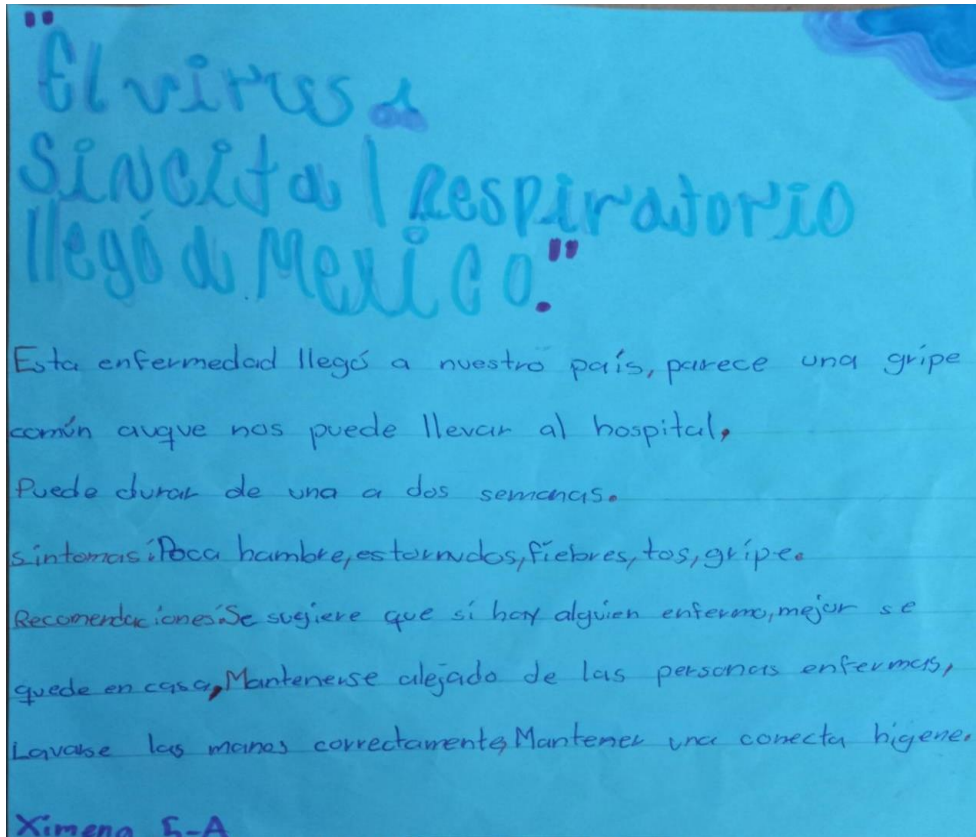 "El virus
Sincital Respiratorio
llegó a Mexico."
Esta enfermedad llegó a nuestro país, parece una gripe
común auque nos puede llevar al hospital,
Puede durar de una a dos semanas.
síntomas: Poca hambre, estornudos, fiebres, tos, gripe.
Recomendaciones: Se sugiere que sí hay alguien enfermo, mejor se
quede en casa, Mantenerse alejado de las personas enfermas,
Lavarse las manos correctamente, Mantener una correcta higene.
Ximena 5-A